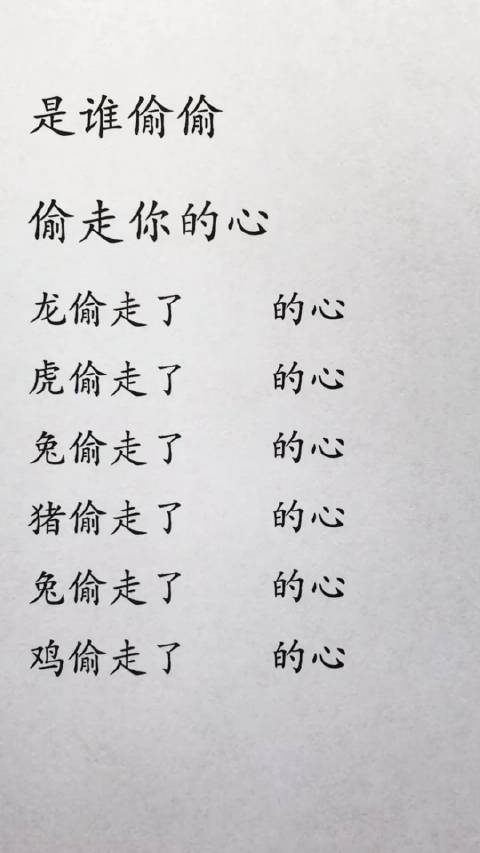 是谁偷偷
偷走你的心
龙偷走了 的心
虎偷走了 的心
兔偷走了 的心
猪偷走了 的心
兔偷走了 的心
鸡偷走了 的心